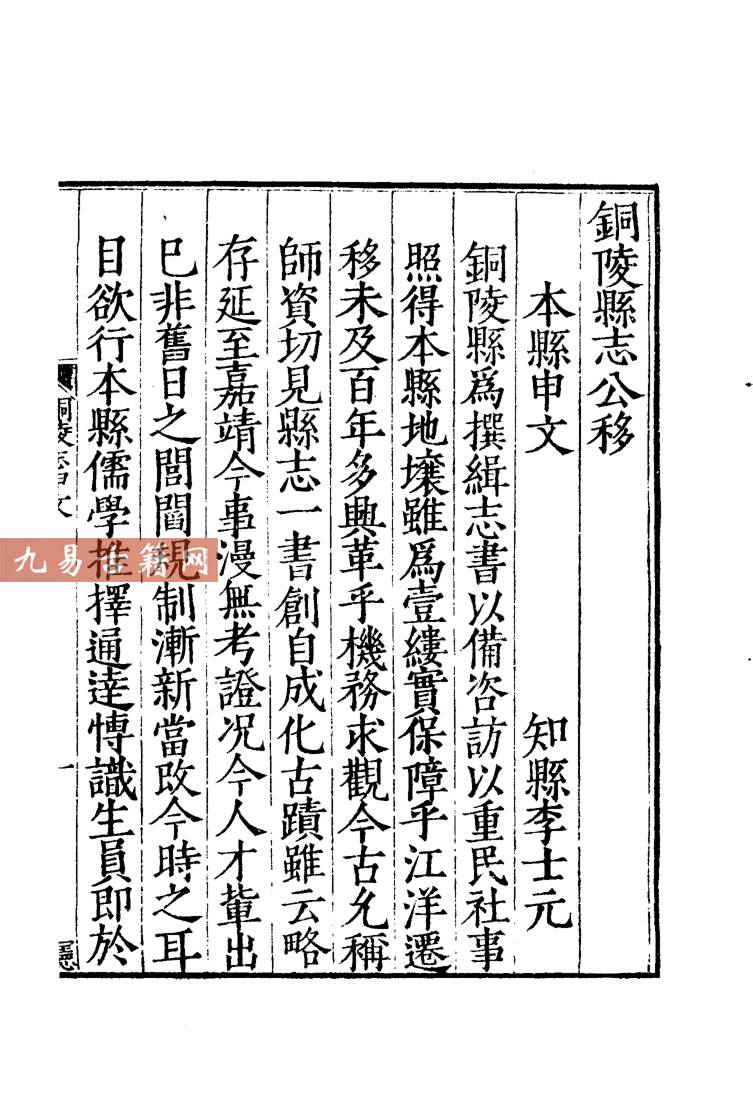 銅陵縣志公移
本縣申文 知縣李士元
銅陵縣爲撰緝志書以備咨訪以重民社事
照得本縣地壤雖爲壹縷實保障乎江洋遷
移未及百年多興革乎機務求觀今古允稱
師資切見縣志一書創自成化古蹟雖云略
存延至嘉靖今事漫無考證况今人才軰出
巳非舊日之閭閻規制漸新當改今時之耳
目欲行本縣儒學推擇通逹博識生員即於
銅陵志申文
一
九易古籍网